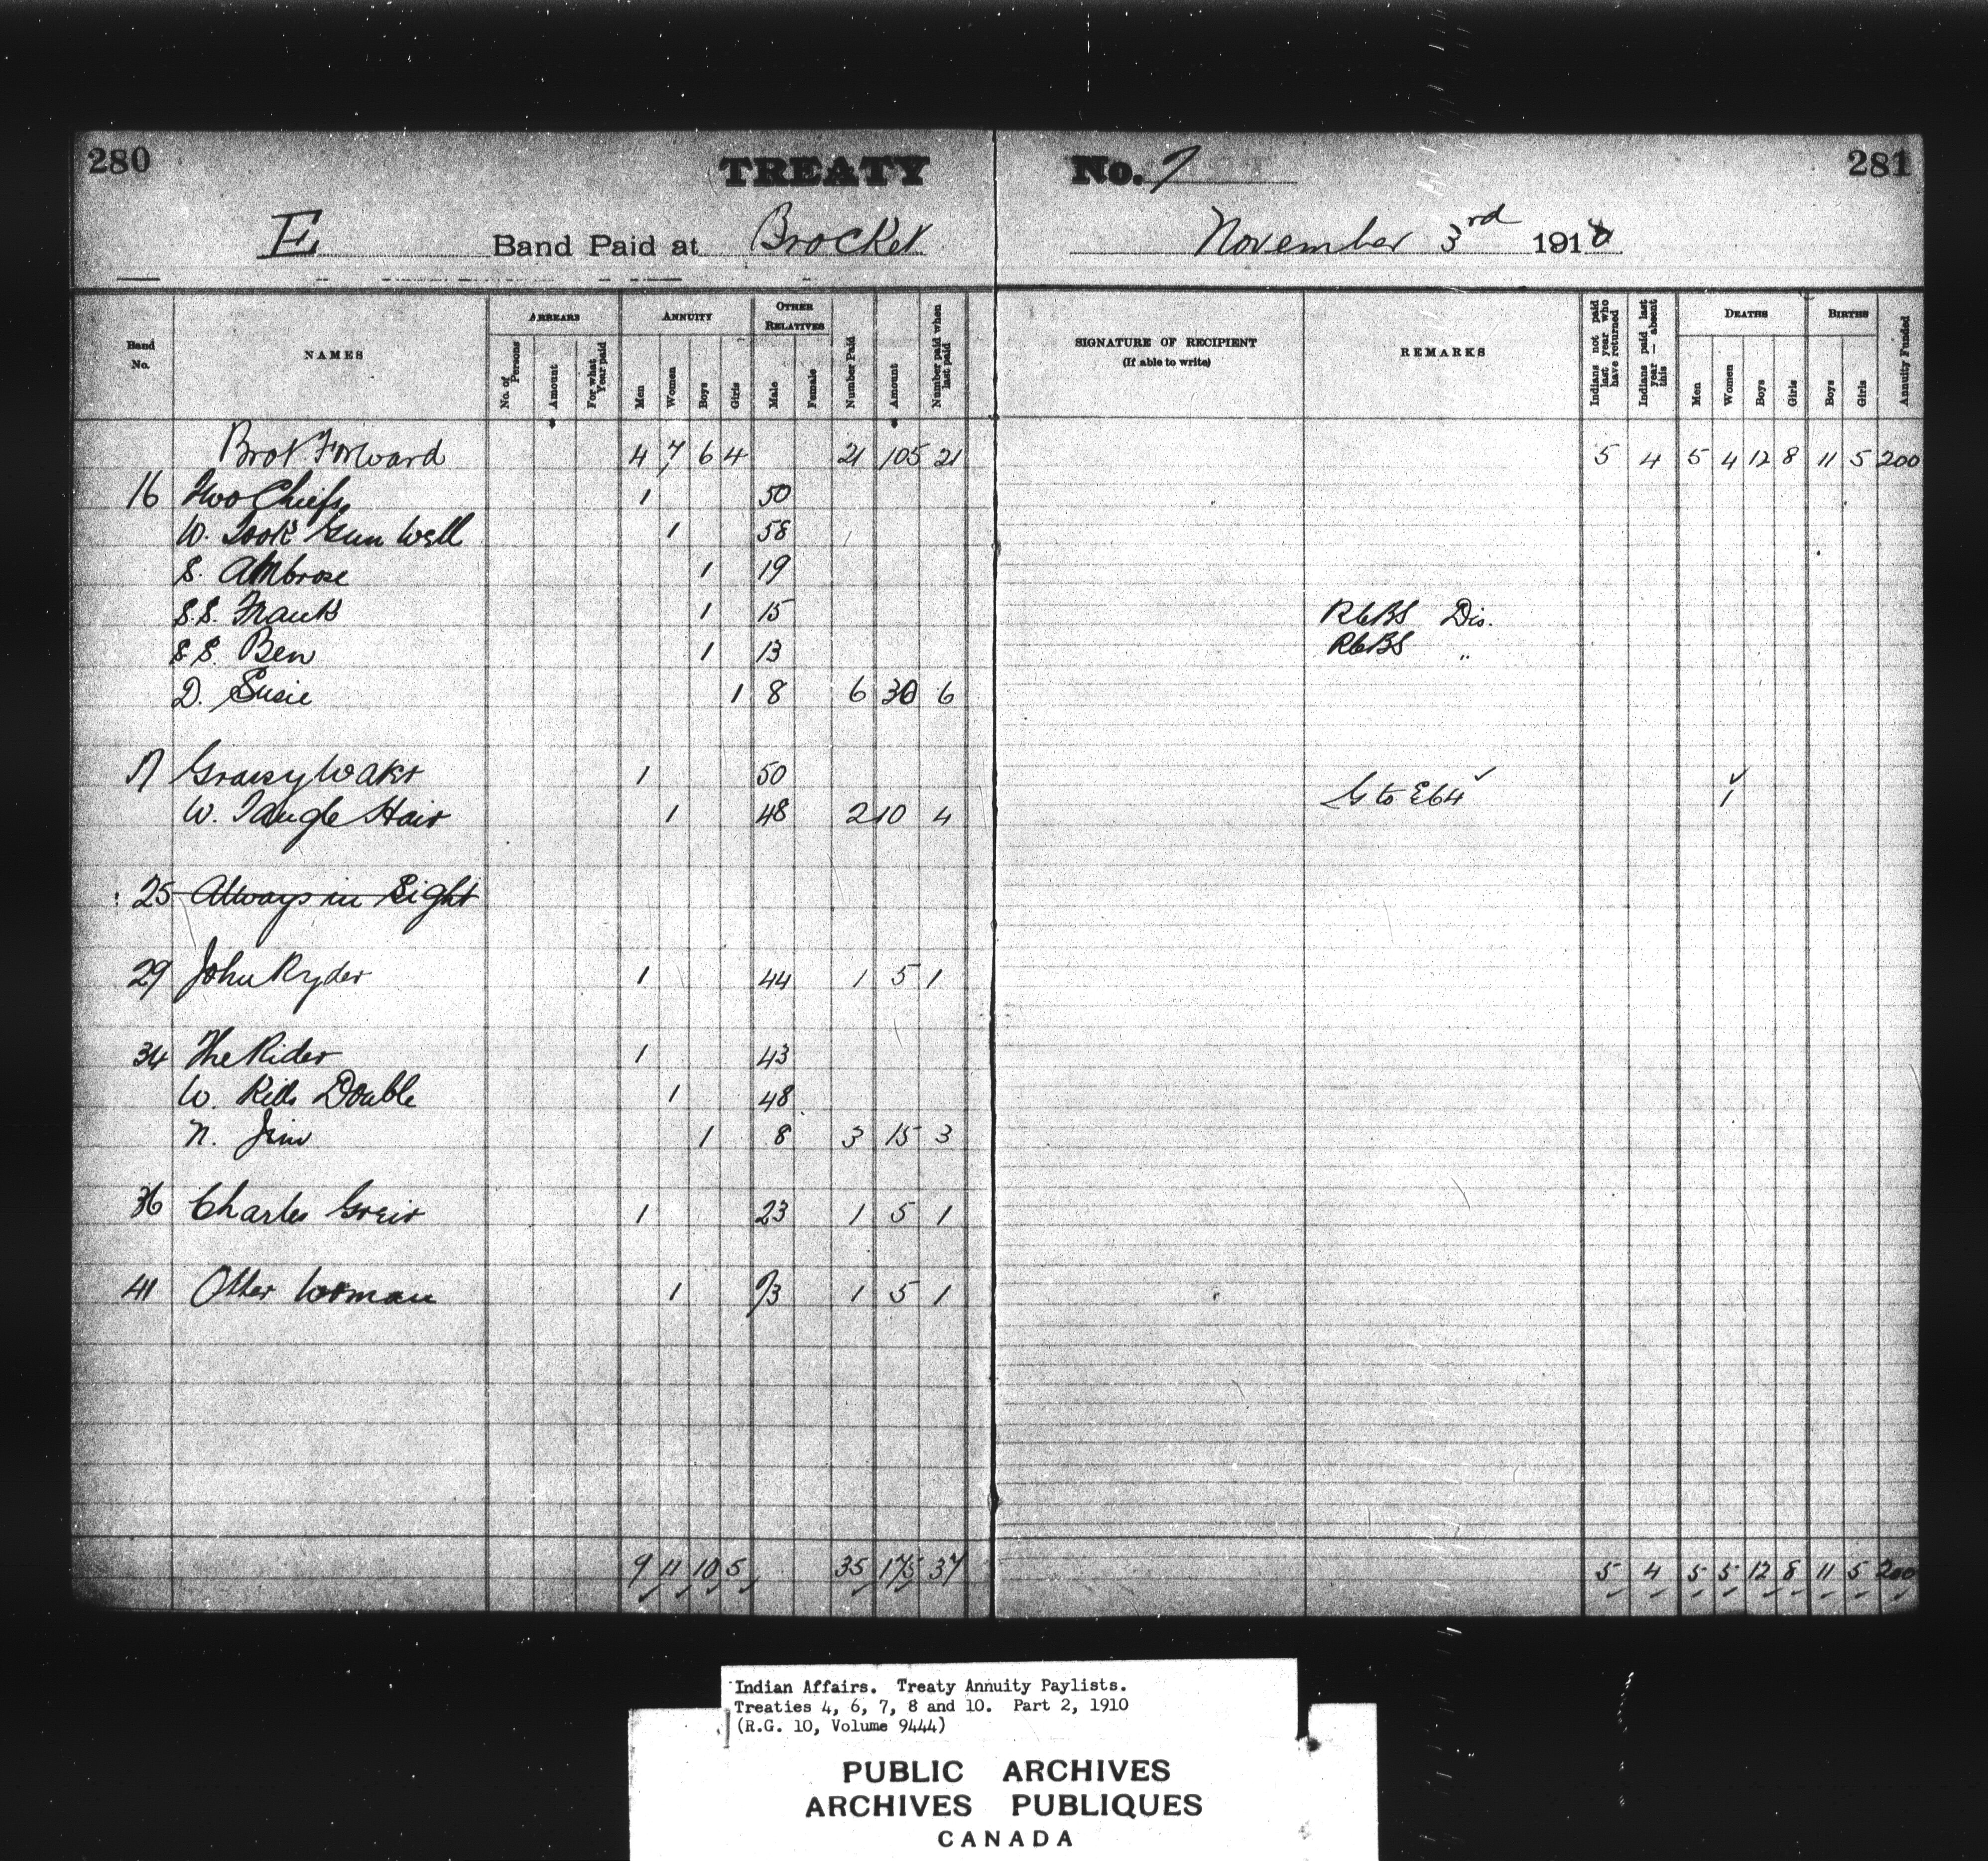 280 TREATY No. 7 281
E Band Paid at Brocket November 3rd 1910
Band No. NAMES ARREARS ANNUITY OTHER RELATIVES Number Paid Amount Number paid when last paid SIGNATURE OF RECIPIENT (If able to write) REMARKS Indians not paid last year who have returned Indians paid last year — absent this DEATHS BIRTHS Annuity Funded
No. of Persons Amount For what Year paid Men Women Boys Girls Male Female Men Women Boys Girls Boys Girls
Brot Forward 4 7 6 4 21 105 21 5 4 5 4 12 8 11 5 200
16 Two Chiefs 1 50
W. Took Gun Well 1 58
S. Ambrose 1 19
S.S. Frank 1 15 RCBS Dis.
S.S. Ben 1 13 RCBS "
D. Susie 1 8 6 30 6
17 Grassy Water 1 50
G to E64 1
W. Tangle Hair 1 48 2 10 4
25 Always in Sight
29 John Ryder 1 44 1 5 1
34 The Rider 1 43
W. Kills Double 1 48
N. Jim 1 8 3 15 3
36 Charles Greir 1 23 1 5 1
41 Otter Woman 1 73 1 5 1
9 11 10 5 35 175 37 5 4 5 5 12 8 11 5 200
Indian Affairs. Treaty Annuity Paylists.
Treaties 4, 6, 7, 8 and 10. Part 2, 1910
(R.G. 10, Volume 9444)
PUBLIC ARCHIVES
ARCHIVES PUBLIQUES
CANADA